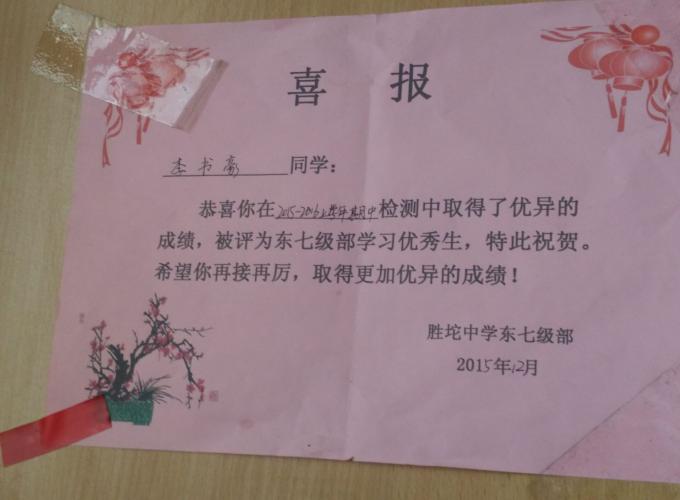 喜 报
李书豪 同学：
恭喜你在2015-2016上学年期中检测中取得了优异的
成绩，被评为东七级部学习优秀生，特此祝贺。
希望你再接再厉，取得更加优异的成绩！
胜坨中学东七级部
2015年12月